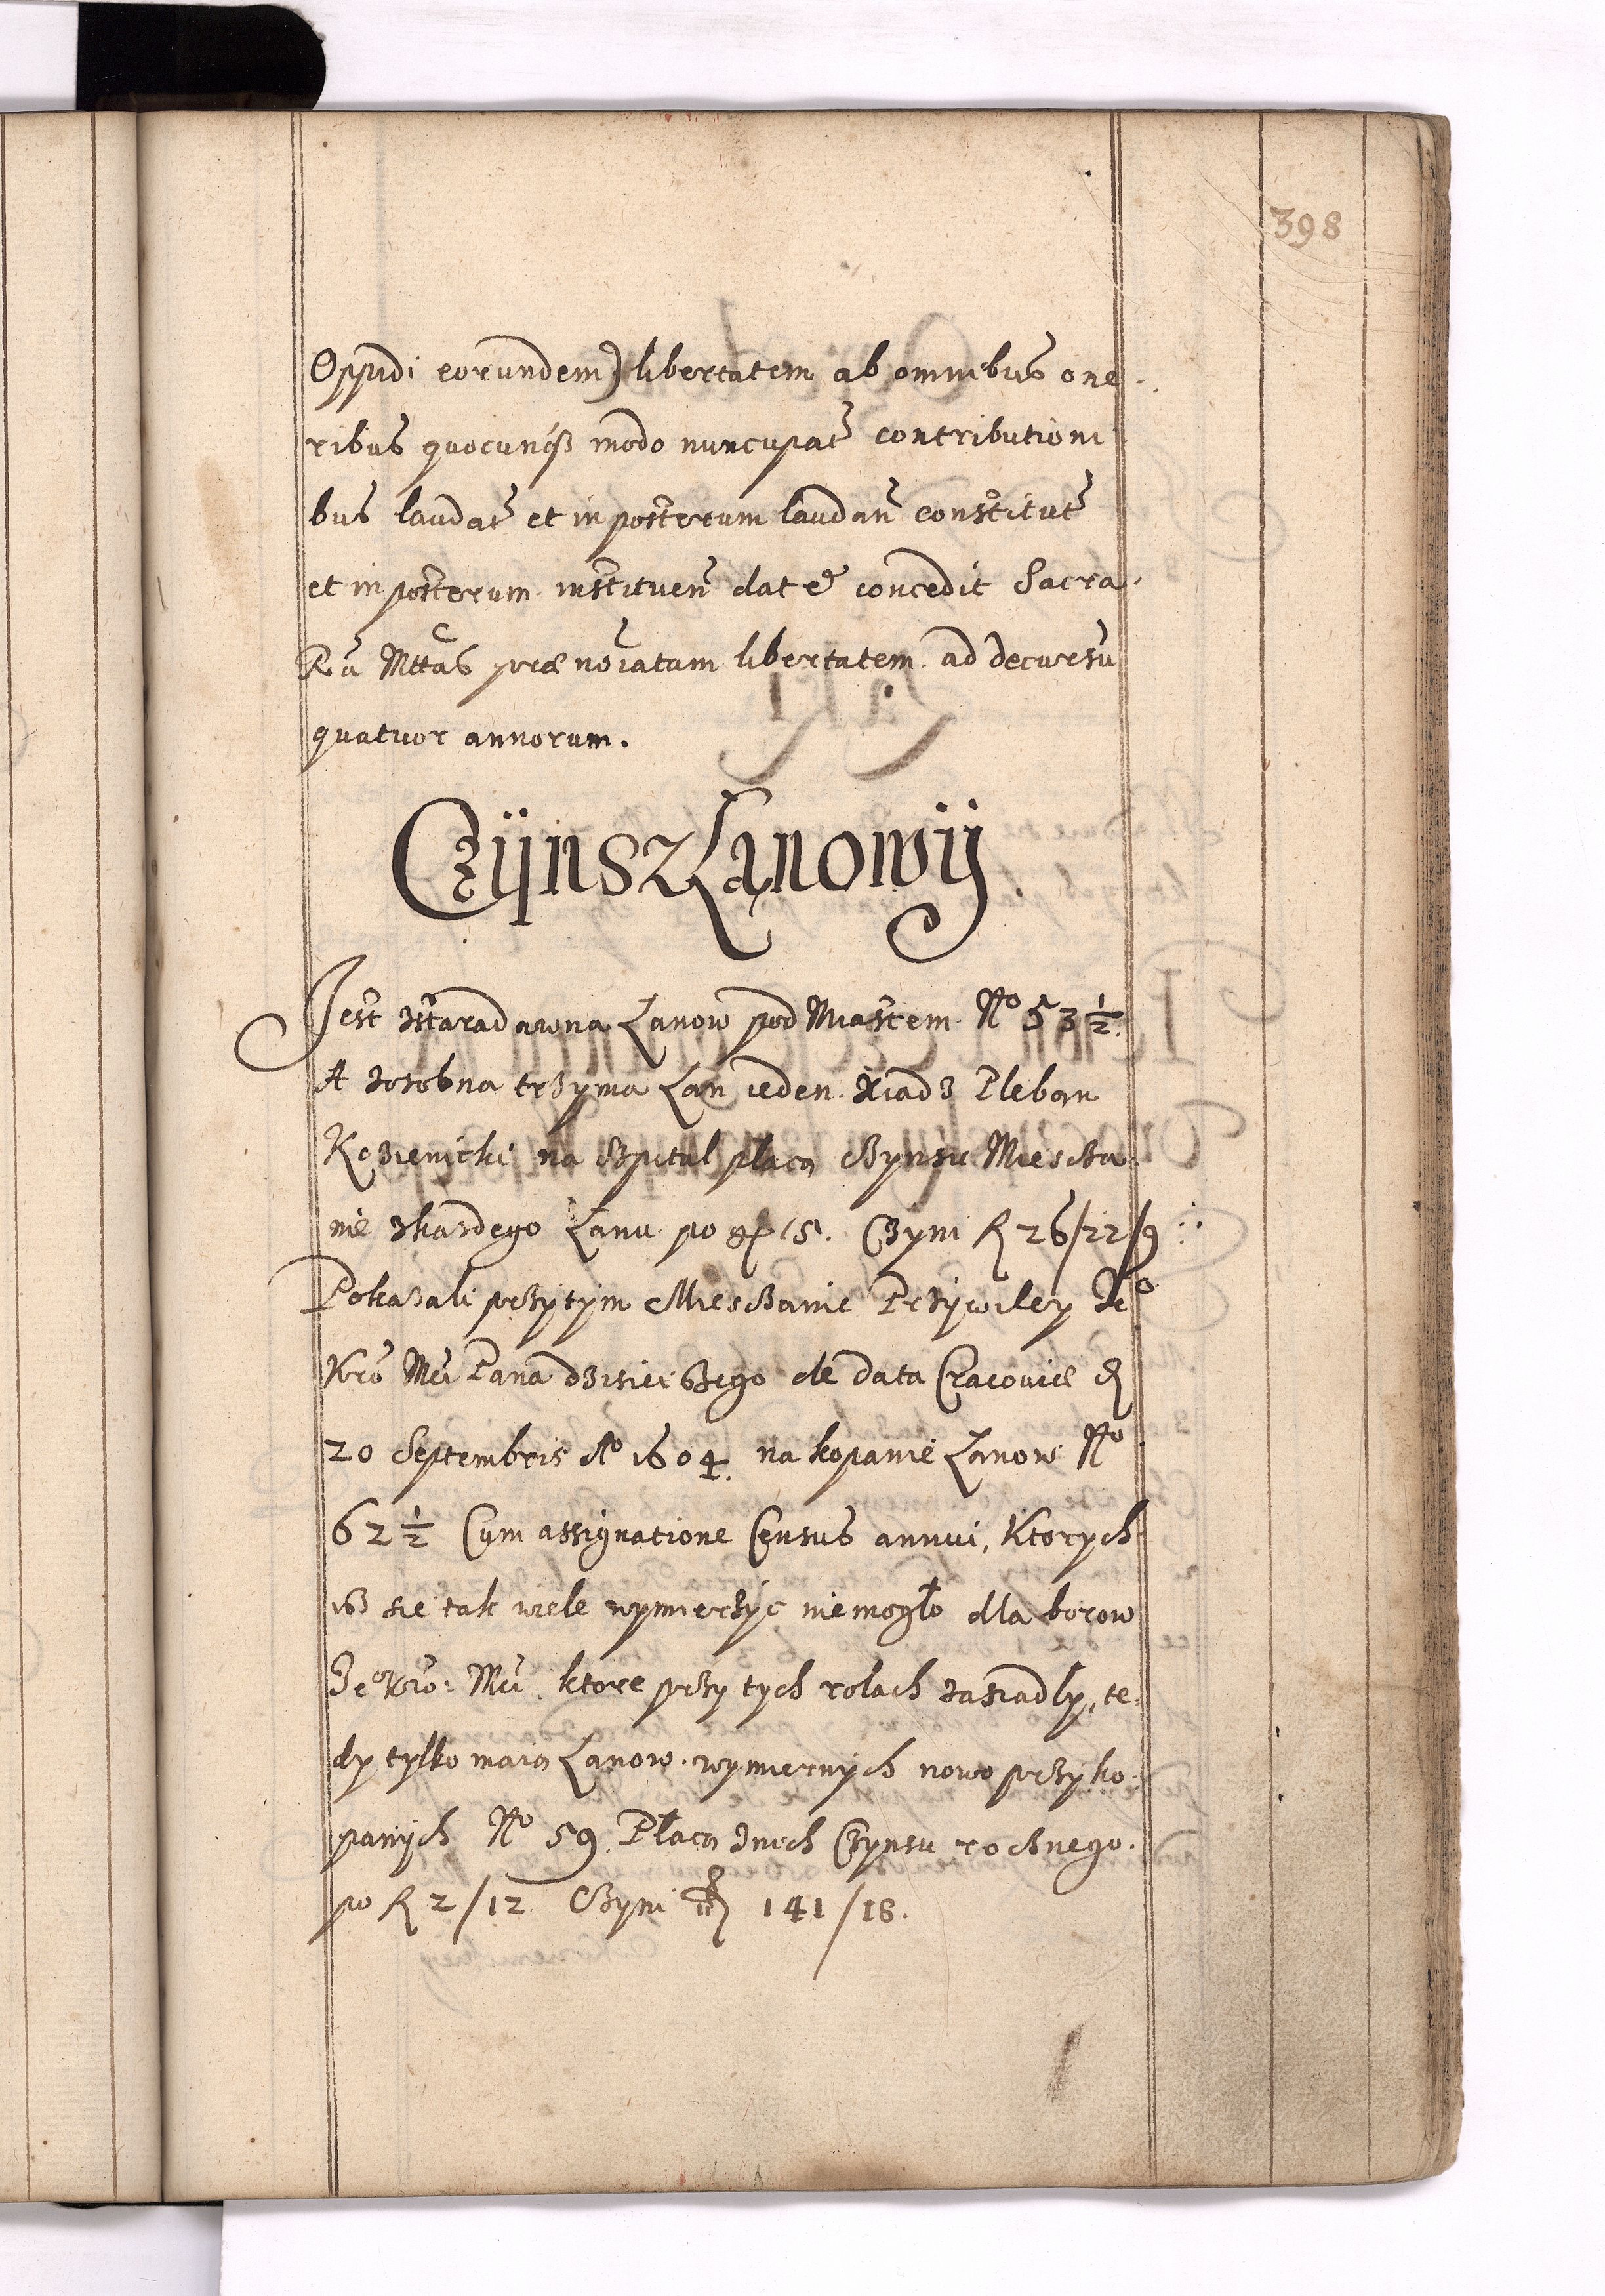 398
Oppidi eorundem) libertatem ab omnibus one-
ribus quocunqs modo nuncupat contributioni
bus laudat et in posterum laudan constitut
et in posterum instituen dat et concedit Sacra
Ra Mttas prae no͠iatam libertatem ad decursu
quatuor annorum.
Czÿnsz Łanowÿ.
Jest zstaradawna Łanow pod Miastem No 53 1/2.
A zosobna trzyma Łan ieden Xiadz Pleban
Kozienicki na Szpital płaca Czynsu Miescza-
nie zkazdego Łanu po gr 15. Czyni R 26/22/9
Pokazali przytÿm Miesczanie Przÿwiley Jeo
Kro Mci Pana dzisieiszego de data Cracoviæ d
20 Septembris Ao 1604. na kopanie Łanow No
62 1/2 Cum assignatione Census annui, Ktorych
isz sie tak wiele wymierzÿc nie mogło dla borow
Jeo Kro: Mci ktore przy tych rolach zasiadly, te-
dy tylko maia Łanow wymiernÿch nowo przyko-
panÿch No 59. Płaca znich Czynsu rocznego
po R 2/12 Czyni 141/18.